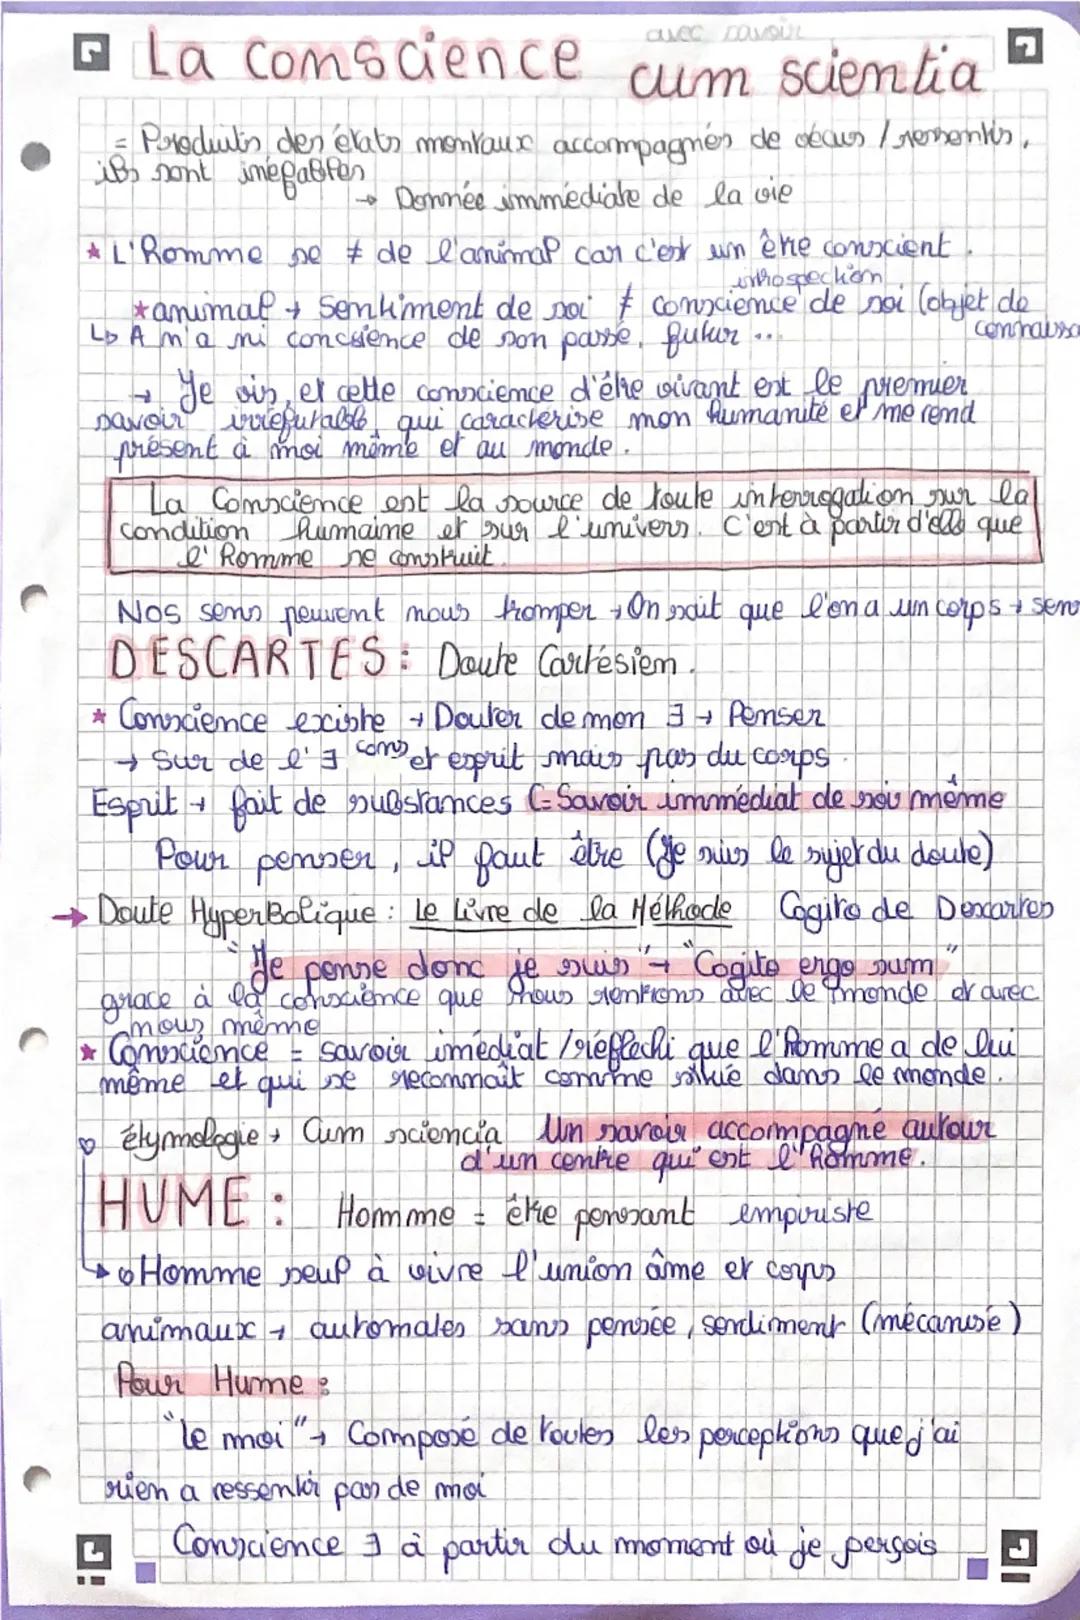 avec savoir
La conscience cum scientia
= Produits des états mentaux accompagnés de / ressentis,
ils sont inéfables
→ Donnée immédiate de la vie
* L'Homme se ≠ de l'animal car c'est un être conscient.
introspection
* animal → sentiment de soi ≠ conscience de soi (objet de
↳ A m'a ni concsience de son passé, futur ... connaissa
→ Je vis, et cette conscience d'être vivant est le premier
savoir irréfutable, qui caractérise mon humanité et me rend
présent à moi même et au monde.
La Conscience est la source de toute interrogation sur la
condition humaine et sur l'univers. C'est à partir d'elle que
l'Homme se construit.
Nos sens peuvent nous tromper → On sait que l'on a un corps → sens
DESCARTES : Doute Cartésien.
* Conscience existe → Douter de mon ∃ → Penser
→ Sur de l'∃ cons et esprit mais pas du corps.
Esprit → fait de substances (= Savoir immédiat de soi même
Pour penser, il faut être (Je suis le sujet du doute)
→ Doute HyperBolique : Le Livre de la Méthode Cogito de Descartes
"Je pense donc je suis" → "Cogito ergo sum"
grace à la conscience que nous rentrons avec le monde et avec
nous même
* Conscience = savoir imédiat / réfléchi que l'homme a de lui
même et qui se reconnaît comme située dans le monde.
étymologie → Cum sciencia Un savoir accompagné autour
d'un centre qui est l'homme.
HUME : Homme = être pensant empiriste
↳ Homme seul à vivre l'union âme et corps
animaux → automates sans pensée, sendiment (mécanisé)
Pour Hume :
"le moi" → Composé de toutes les perceptions que j'ai
rien a ressentir pas de moi
Conscience ∃ à partir du moment où je perçois